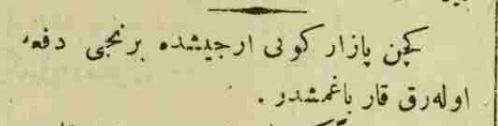 كچن پازار كونی ارجیشده برنجی دفعه
اوله‌رق قار یاغمشدر .